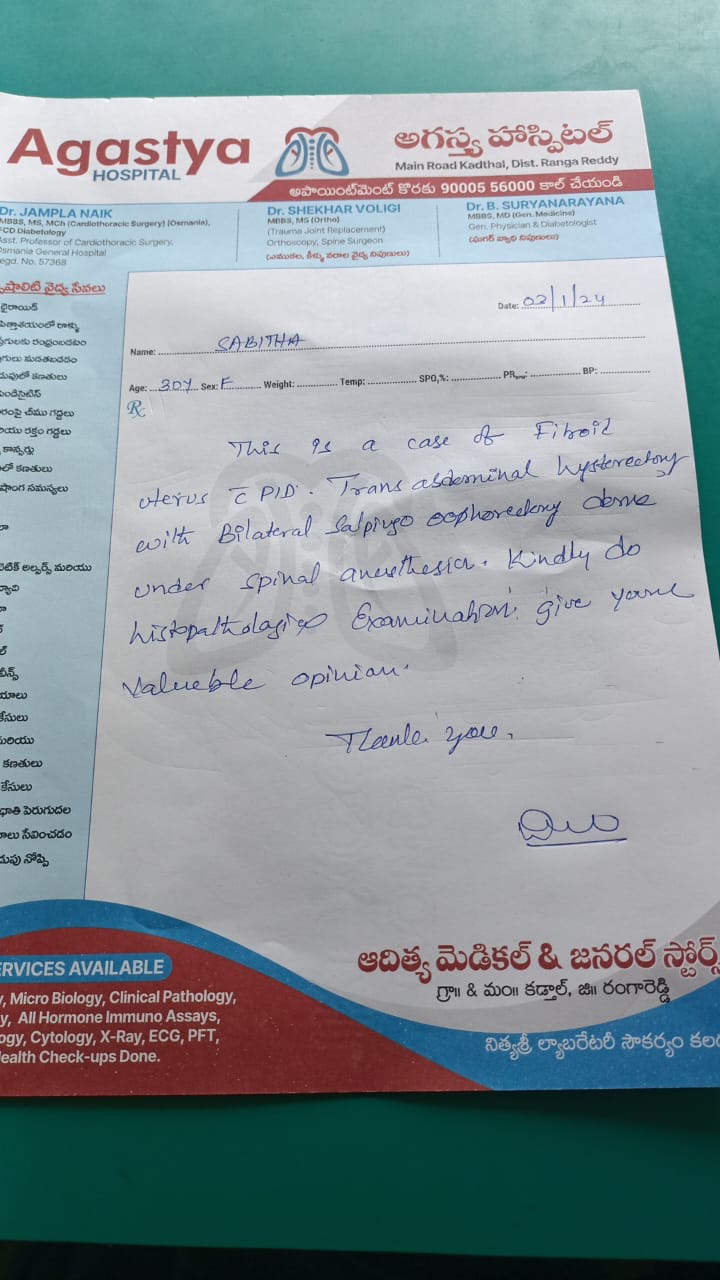 Agastya
HOSPITAL
అగస్త్య హాస్పిటల్
Main Road Kadthal, Dist. Ranga Reddy
అపాయింట్‌మెంట్ కొరకు 90005 56000 కాల్ చేయండి
Dr. JAMPLA NAIK
MBBS, MS, MCh (Cardiothoracic Surgery) (Osmania),
FCD Diabetology
Asst. Professor of Cardiothoracic Surgery,
Osmania General Hospital
Regd. No. 57368
Dr. SHEKHAR VOLIGI
MBBS, MS (Ortho)
(Trauma Joint Replacement)
Orthoscopy, Spine Surgeon
(ఎముకలు, కీళ్ళు నరాల వైద్య నిపుణులు)
Dr. B. SURYANARAYANA
MBBS, MD (Gen. Medicine)
Gen. Physician & Diabetologist
(షుగర్ వ్యాధి నిపుణులు)
వైద్య సేవలు
థైరాయిడ్
పిత్తాశయంలో రాళ్ళు
రంధ్రంబడటం
మడతబడటం
కణతులు
చీము గడ్డలు
రక్తం గడ్డలు
కాన్సర్లు
లో కణతులు
సమస్యలు
అల్సర్స్ మరియు
కేసులు
మరియు
కణతులు
కేసులు
పెరుగుదల
సేవించడం
నొప్పి
Date: 02/1/24
Name: SABITHA
Age: 30Y Sex: F Weight: Temp: SPO2%: PR BP:
Rx
This is a case of Fibroid
uterus c̄ PID. Trans abdominal hysterectomy
with Bilateral Salpingo oophorectomy done
under spinal anesthesia. Kindly do
histopathological Examination. give your
valueble opinion.
Thank you.
SERVICES AVAILABLE
Micro Biology, Clinical Pathology,
All Hormone Immuno Assays,
Cytology, X-Ray, ECG, PFT,
Health Check-ups Done.
ఆదిత్య మెడికల్ & జనరల్ స్టోర్స్
గ్రా॥ & మం॥ కడ్తాల్, జి॥ రంగారెడ్డి
నిత్యశ్రీ ల్యాబరేటరీ సౌకర్యం కలదు